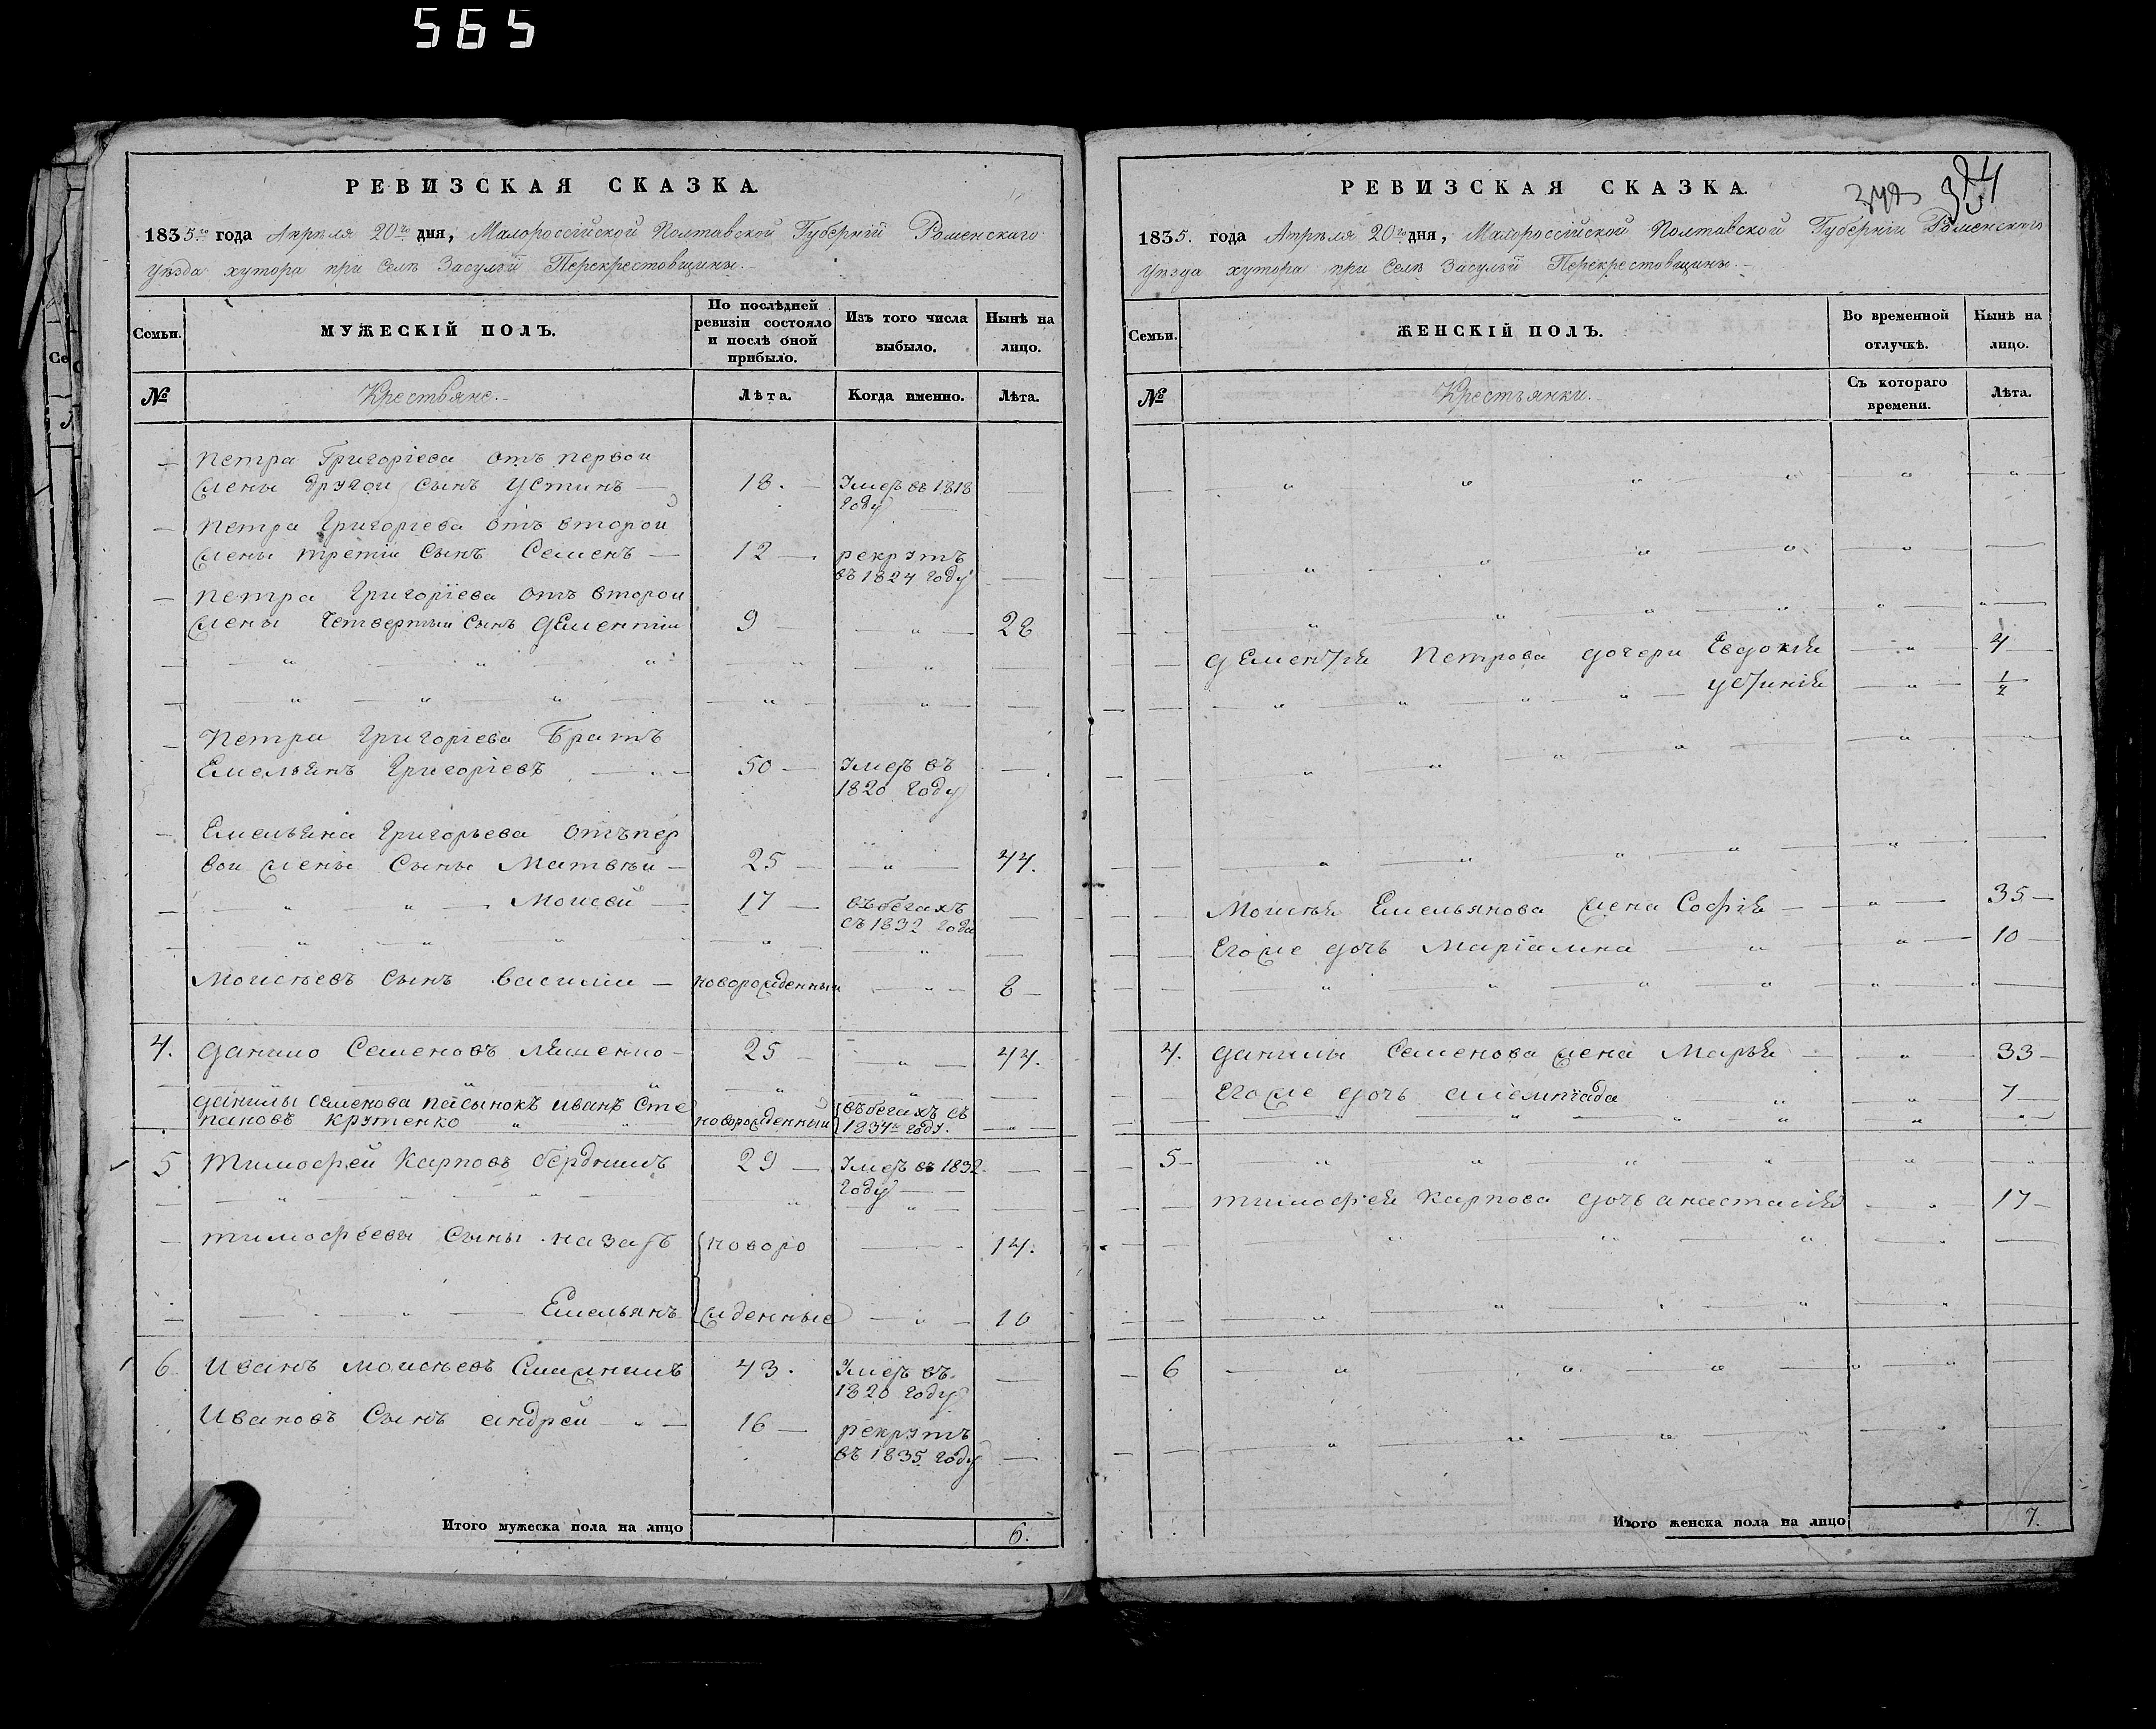 565
РЕВИЗСКАЯ СКАЗКА.
1835го года Апрѣля 20го дня, Малороссійской Полтавской Губерніи Роменскаго
уѣзда хутора при Селѣ Засульи Перекрестовщины.
Семьи.
МУЖЕСКІЙ ПОЛЪ.
По послѣдней ревизіи состояло и послѣ оной прибыло.
Изъ того числа выбыло.
Нынѣ на лицо.
№
Крестьяне.
Лѣта.
Когда именно.
Лѣта.
Петра Григоріева отъ первой
жены другой сынъ Устинъ 18. Умеръ въ 1818
году
Петра Григоріева отъ второй
жены третій сынъ Семенъ 12 рекрутъ
въ 1824 году
Петра Григоріева отъ второй
жены четвертый сынъ Дементій 9 28
Петра Григоріева Братъ
Емельянъ Григоріевъ 50 Умеръ въ
1820 году
Емельяна Григорьева отъ пер
вой жены сыны Матвѣй 25 44.
Моисей 17 въ бегахъ
съ 1832 года
Моисѣевъ сынъ Василій новорожденный 8
4. Данило Семеновъ 25 44.
Данилы Семенова пасынокъ Иванъ Сте
пановъ Крутенко новорожденный въ бегахъ съ
1834го году.
5 Тимофей Карповъ Бердникъ 29 Умеръ въ 1832
году
Тимофеевы сыны Назаръ новоро 14.
Емельянъ жденные 10
6. Иванъ Моисѣевъ 43. Умеръ въ
1820 году
Ивановъ сынъ Андрей 16 рекрутъ
въ 1835 году
Итого мужеска пола на лицо 6.
РЕВИЗСКАЯ СКАЗКА.
1835. года Апрѣля 20го дня, Малороссійской Полтавской Губерніи Роменскаго
уѣзда хутора при Селѣ Засульи Перекрестовщины.
Семьи.
ЖЕНСКІЙ ПОЛЪ.
Во временной отлучкѣ.
Нынѣ на лицо.
№
Крестьянки.
Съ котораго времени.
Лѣта.
Дементія Петрова дочери Евдокія 4
Устинія 1/2
Моисѣя Емельянова жена Софія 35
Его же дочь Маріамна 10
4. Данилы Семенова жена Марья 33
Его же дочь 7
5
Тимофея Карпова дочь Анастасія 17
6
Итого женска пола на лицо 7.